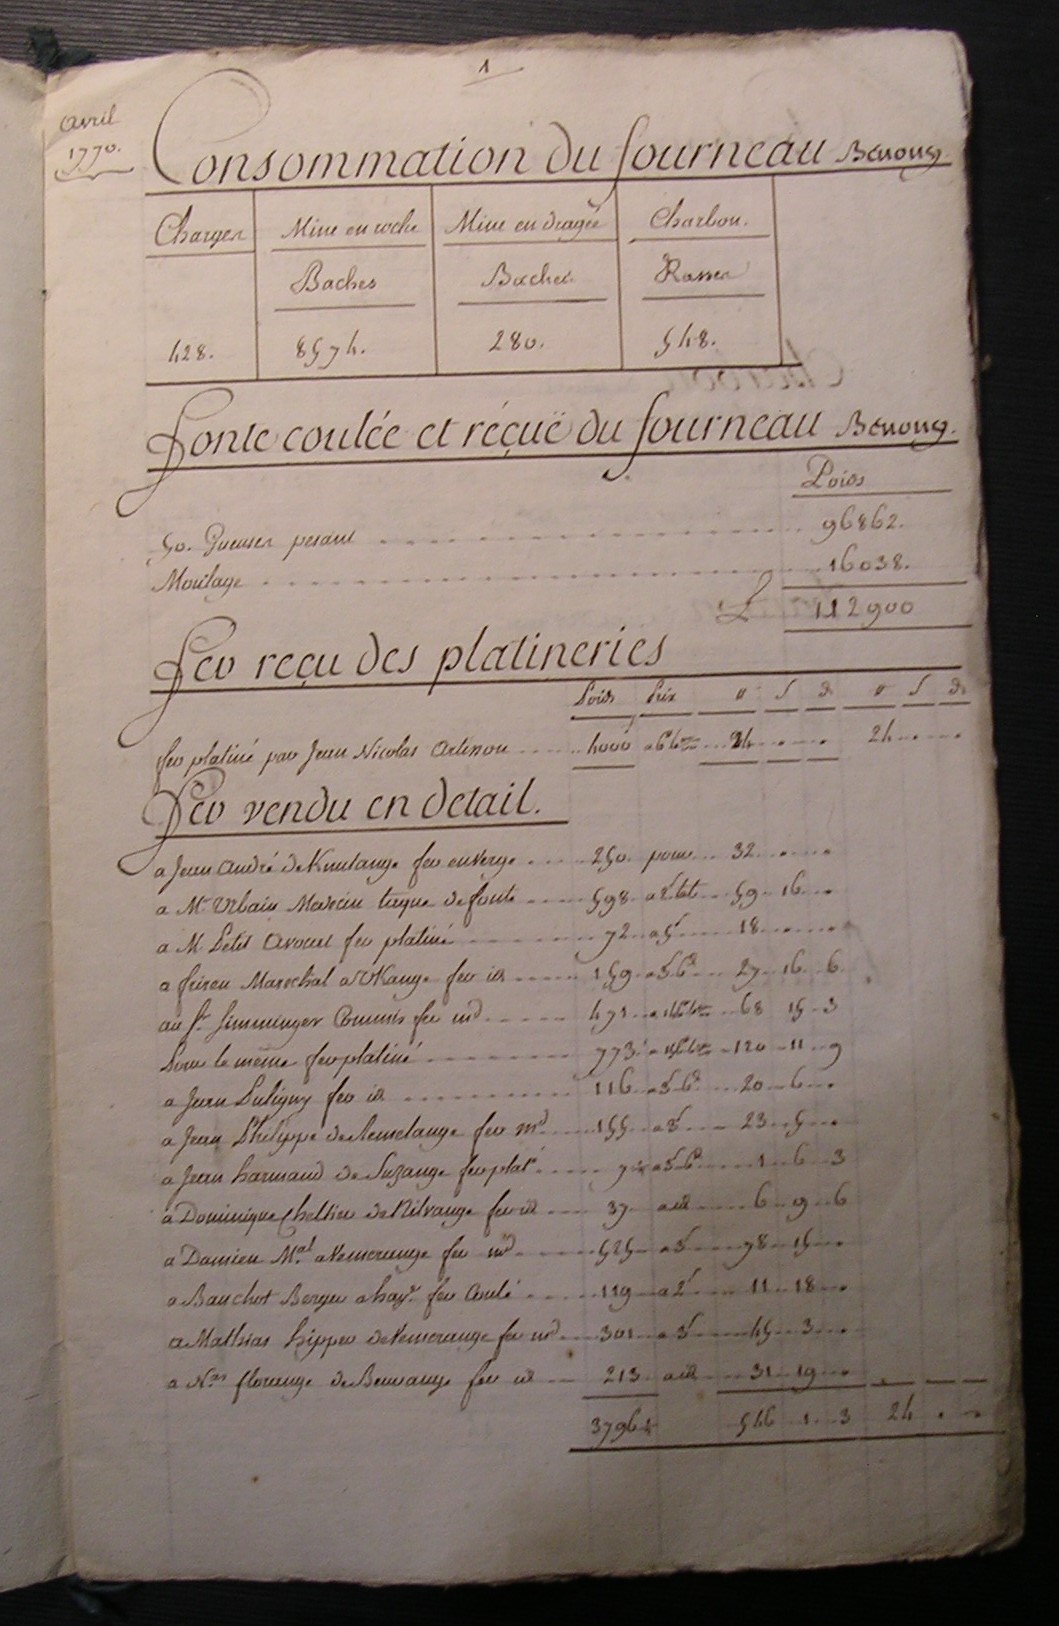 1
Avril
1770.
Consommation du fourneau
Charges Mine en roche Mine en dragée Charbon.
Baches Baches Rasses
428. 8574. 280. 548.
Fonte coulée et réçuë du fourneau
Poids
50. Gueuses pesant 96862.
Moulage 16038.
112900
Fer reçu des platineries
Poids Prix # S d # S d
fer platiné par Jean Nicolas 4000 a 6# 24 24
Fer vendu en detail.
a Jean André de Knutange fer en verge 250. pour 32
a Mr Urbain Marcin taque de fonte 598 59 16
a M Petit Avocat fer platiné 72 a 5s 18
a Marechal a Ukange fer id 159 a 3s 6d 27 16 6
au Sr Simminger Commis fer md 471 68 15 3
Pour le même fer platiné 773 120 11 9
a Jean Puligny fer id 116 a 3s 6d 20 6
a Jean Philippe de fer md 155 a 3s 23 5
a Jean harmand de Suzange fer plat 7½ a 3s 6d 1 6 3
a Dominique de Nilvange fer id 37 a id 6 9 6
a Damien Mal a Vemerange fer md 525 a 3s 78 15
a Bauchot Berger a hay. fer Coulé 119 a 2s 11 18
a Mathias hipper de Vemerange fer md 301 a 3s 45 3
a Nas florange de Beuvange fer id 213 a id 31 19
3796½ 546 1 3 24